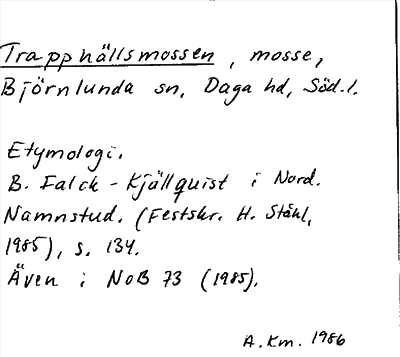 Trapphällsmossen, mosse,
Björnlunda sn, Daga hd, Söd.l.
Etymologi.
B. Falck-Kjällquist i Nord.
Namnstud. (Festskr. H. Ståhl,
1985), s. 134.
Även i NoB 73 (1985).
A. Km. 1986